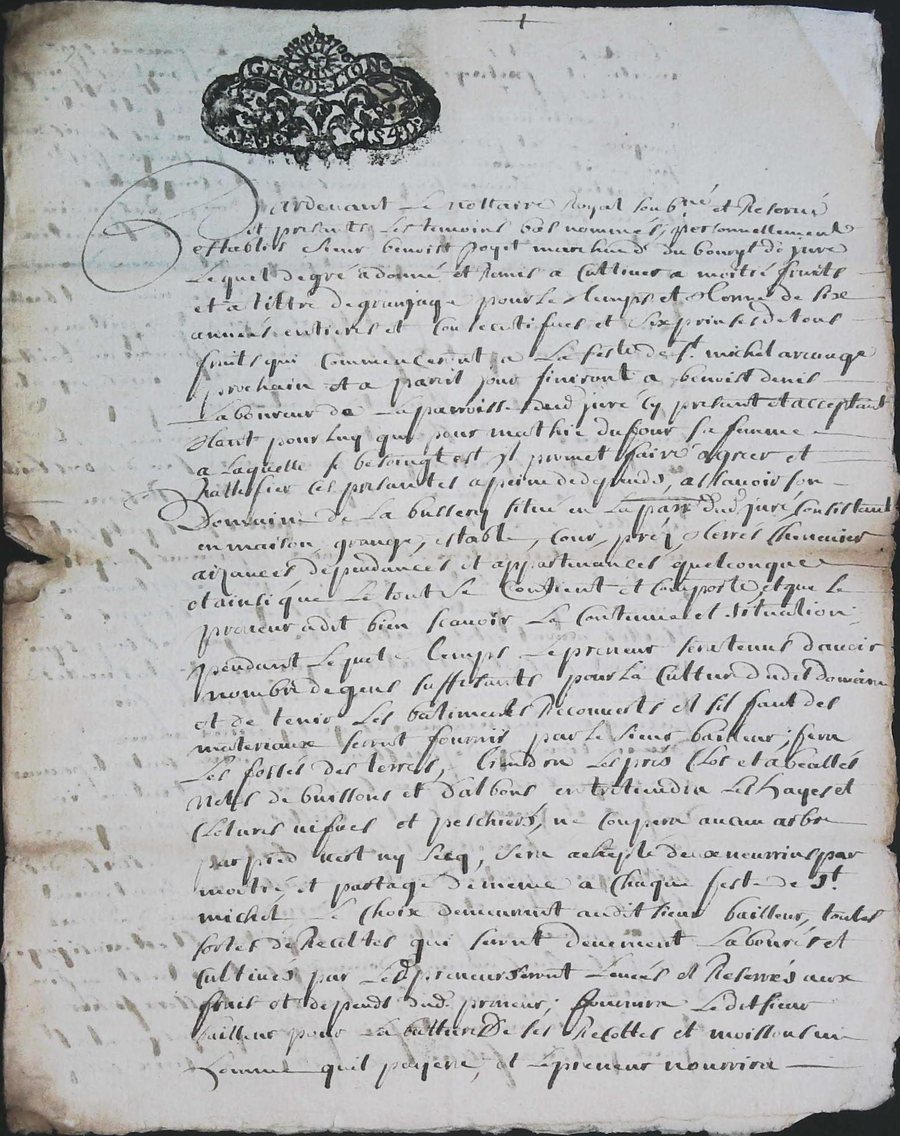 GEN. DE LION
Pardevant Le nottaire Royal soubné et Reservé
et presents Les temoins bas nommés, personnellement
establis sieur benoist poyet marchand du bourg de jure
Lequel de gré a donné et Remis a Cultiver a moitié fruits
et a tittre de grangage pour Le temps et terme de six
années entieres et Consecutifues et six prinses de tous
fruits qui Commenceront a La feste de St. michel arcange
prochain et a pareil jour finiront a benoist denis
Laboureur de La parroisse dud jure Cy presant et acceptant
tant pour Luy que pour mathie dupour sa femme
a Laquelle sy besoingt est Il promet faire agreer et
Rattiffier Ces presantes a peine de depends, a scavoir son
Domaine de La bussery situé en La parr. dud. juré, Consistant
en maison, grange, estable, Cour, préz, terres Chenevier
aizances, dependances et appartenances quelconque
et ainsi que Le tout se Contient et Comporte et que Le
preneur a dit bien scavoir La Contenue et situation
pendant Lequel temps Le preneur sera tenus d'avoir
nombre de gens suffisants pour La Culture dudit Domaine
et de tenir Les batiments Recouverts et sil faut des
materiaux seront fournis par Le sieur bailleur; fera
Les fossés des terres, tiendra Les prés Clos et abeallés
nets de buissons et darbons entretiendra Les hayes et
Clotures vifues et peschiers, ne Coupera aucun arbre
par pied vert ny secq, sera achepté deux nourrins par
moitié, et partagé de meme a Chaque feste de St.
michel Le Choix demeurant audit sieur bailleur, toutes
sortes de Recoltes qui seront deuement Labourés et
Cultivés par Led preneur seront Levés et Reservés aux
frais et depends dud. preneur; fournira Ledit sieur
bailleur pour La batture De ses Recottes et moissons un
homme quil payera, et Le preneur nourrira